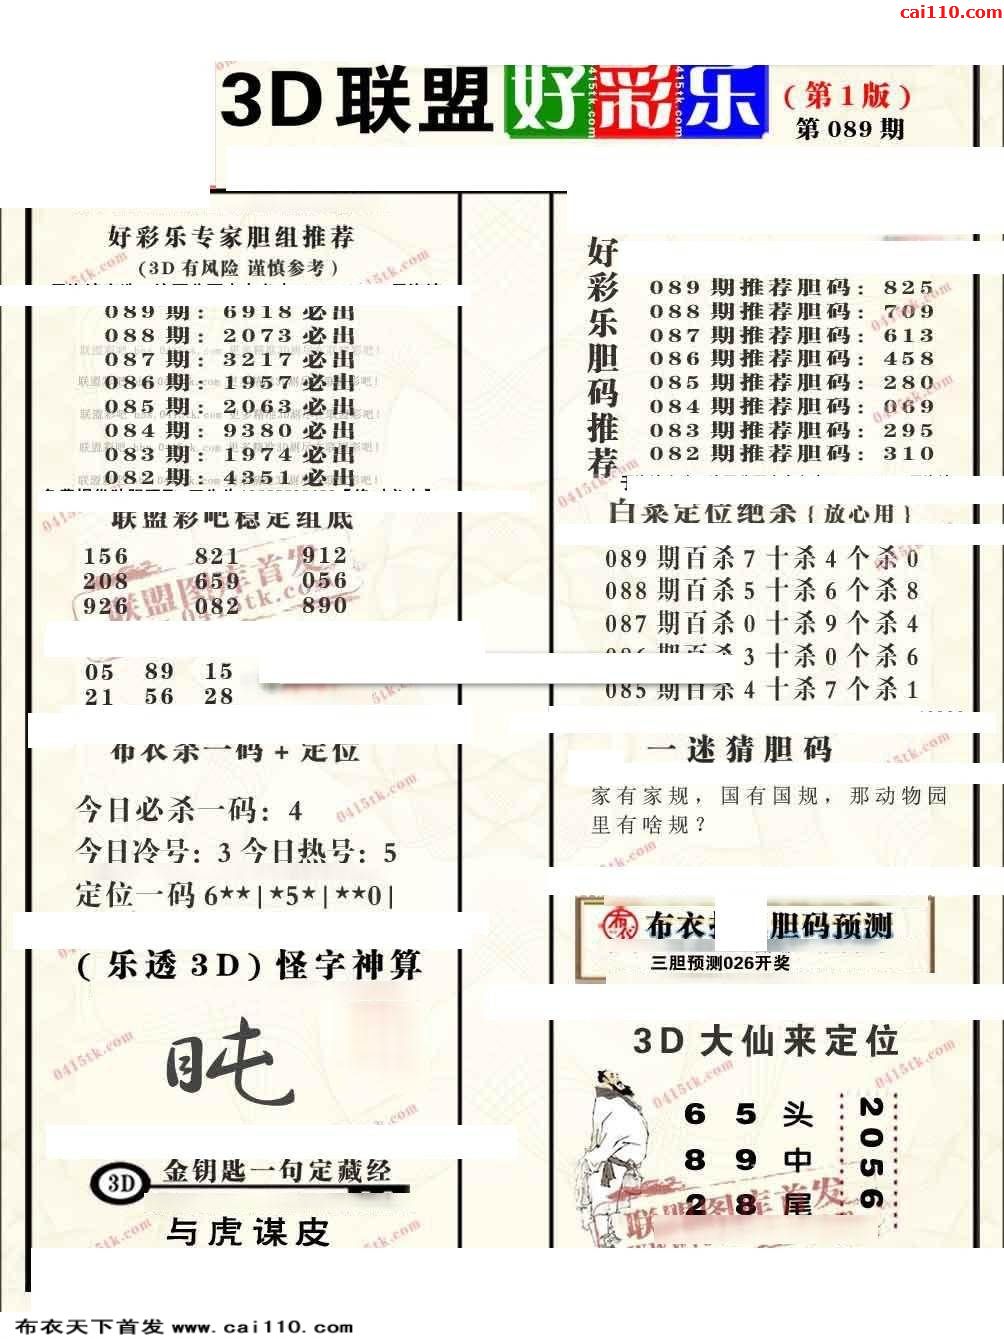 cai110.com
3D联盟好彩乐
(第1版)
第089期
好彩乐专家胆组推荐
(3D有风险 谨慎参考)
089期: 6918必出
088期: 2073必出
087期: 3217必出
086期: 1957必出
085期: 2063必出
084期: 9380必出
083期: 1974必出
082期: 4351必出
联盟彩吧稳定组底
156 821 912
208 659 056
926 082 890
05 89 15
21 56 28
布衣杀一码+定位
今日必杀一码: 4
今日冷号: 3 今日热号: 5
定位一码 6**|*5*|**0|
(乐透3D)怪字神算
盹
3D 金钥匙一句定藏经
与虎谋皮
好彩乐胆码推荐
089期推荐胆码: 825
088期推荐胆码: 709
087期推荐胆码: 613
086期推荐胆码: 458
085期推荐胆码: 280
084期推荐胆码: 069
083期推荐胆码: 295
082期推荐胆码: 310
白菜定位绝杀{放心用}
089期百杀7十杀4个杀0
088期百杀5十杀6个杀8
087期百杀0十杀9个杀4
3十杀0个杀6
085期百杀4十杀7个杀1
一迷猜胆码
家有家规，国有国规，那动物园
里有啥规？
布衣 胆码预测
三胆预测026开奖
3D大仙来定位
6 5 头
8 9 中
2 8 尾
2056
联盟图库首发
0415tk.com
布衣天下首发 www.cai110.com